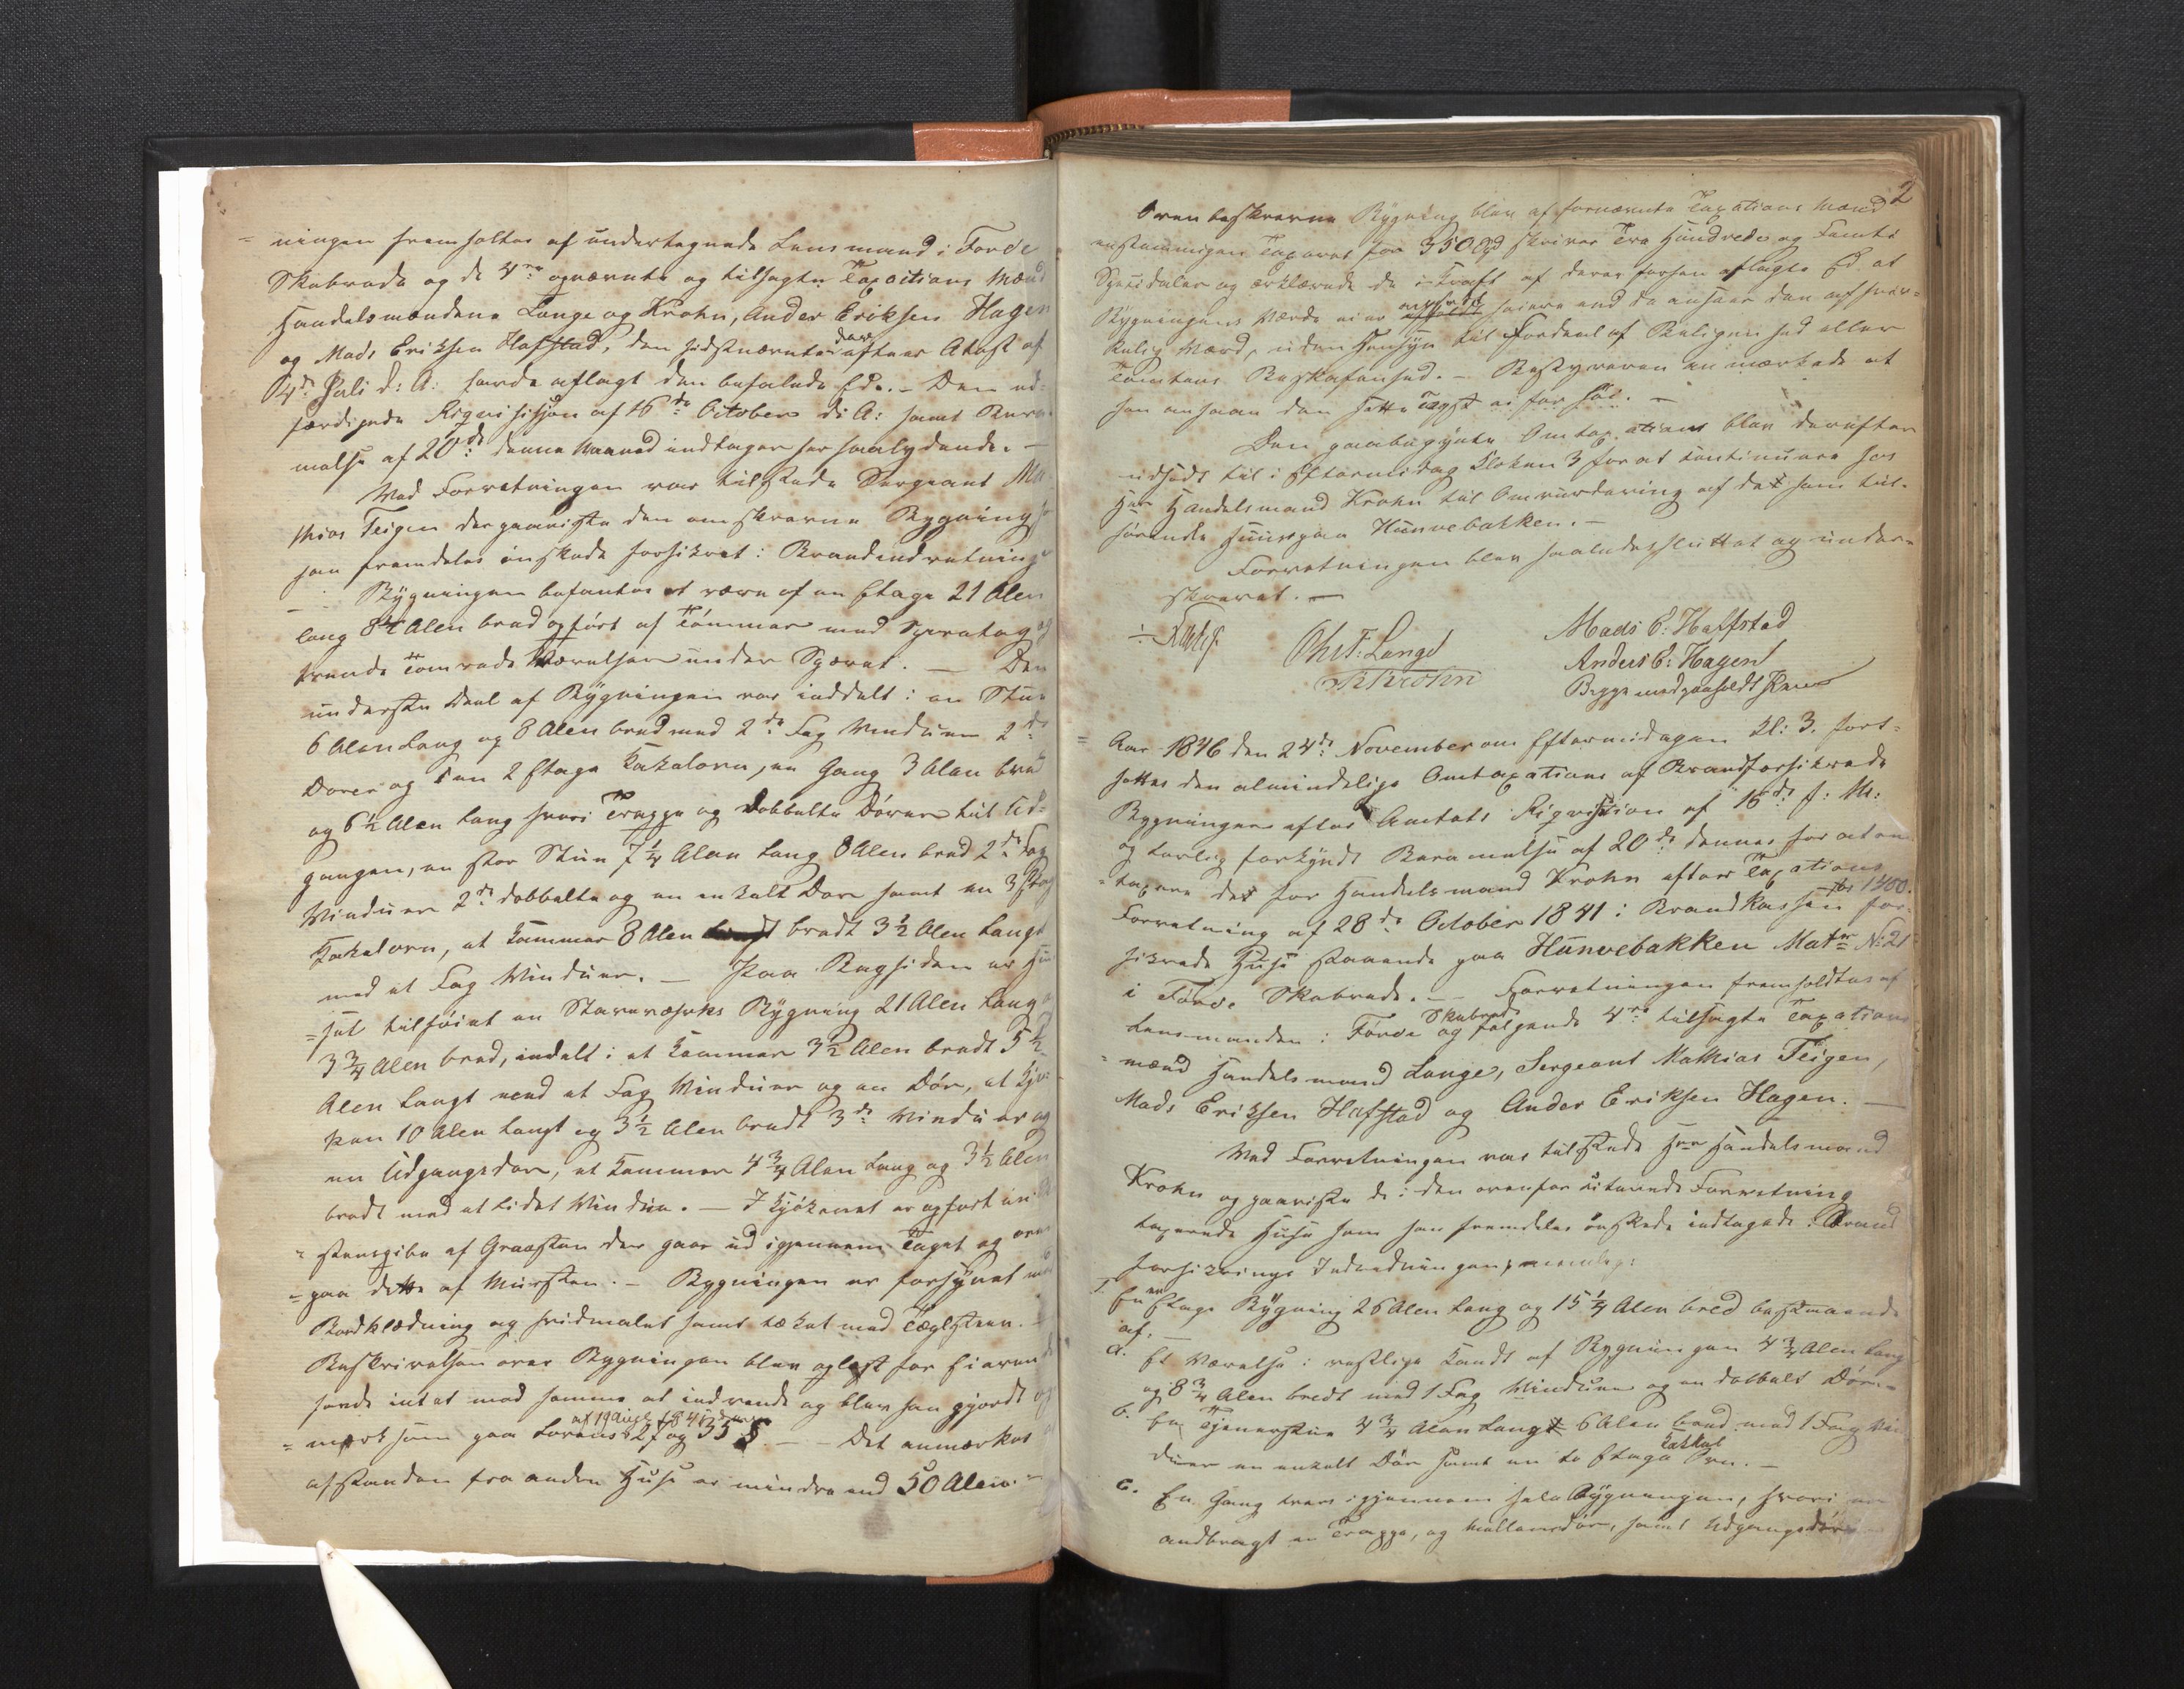 ningen fremholtes af undertegnede Lensmand i Førde
Skibrede og de 4re opnævnte og tilsagte Taxations Mænd
Handelsmændene Lange og Krohn, Ander Eriksen Hagen
og Mads Eriksen Hafstad, den sidstnævnte der efter Atest af
4de Juli d: A: havde aflagt den befalede Ed. - Den ud-
færdigede Riqvisisjon af 16de October d: A: samt Beram-
melse af 20de denne Maaned indtages her saalydende. -
Ved Forretningen var tilstede Sergeant Ma-
thias Teigen der paaviste den omskrevne Bygning
han fremdeles ønskede forsikret i Brandindretning
- Bygningen befantes at være af en Etage 21 Alen
lang 8¼ Alen bred opført af Tømmer med Sperretag og
tvende Tomrede Værelser under Sperret. - Den
underste Deel af Bygningen var inddelt i en Stue
6 Alen Lang og 8 Alen bred med 2de Fag Vinduer 2de
Dører og 1 en 2 Etage Kakelovn, en Gang 3 Alen bred
og 6½ Alen lang hvori Trappe og Dobbelte Dører til Ud-
gangen, en stor Stue 7¼ Alen Lang 8 Alen bred 2de Fag
Vinduer 2de dobbelte og en enkelt Dør samt en 3 Etag
Kakelovn, et Kammer 8 Alen bredt 3½ Alen Langt
med et Fag Vinduer. - Paa Bagsiden er Hu-
=set tilføiet en Staveværks Bygning 21 Alen Lang
3¾ Alen bred, indelt i et Kammer 3½ Alen bredt 5½
Alen Langt med et Fag Vinduer og en Dør, et Kjø-
ken 10 Alen Langt og 3½ Alen bredt 3de Vinduer og
en Udgangsdør, et Kammer 4¾ Alen Lang og 3½ Alen
bredt med et lidet Vindue. - I Kjøkenet er opført en
=stenspibe af Graasten der gaar ud igjennem Taget og oven
=paa dette af Mursten. - Bygningen er forsynet med
Bordklædning og hvidmalet samt tækket med Tæglsteen. -
Beskrivelsen over Bygningen blev oplæst for Eieren
havde intet mod samme at indvende og blev han gjordt op
=mærksom paa Lovens af 19 Aug 1845 § 27 og 35 - - Det anmærkes
afstanden fra anden Huse er mindre end 50 Alen. -
2
Ovenbeskrevne Bygning blev af fornævnte Taxations Mænd
enstemmigen Taxeret for 350 Spd skriver Tre Hundrede og Femti
Speciedaler og erklærede de i Kraft af deres forhen aflagte Ed at
Bygningens Værdi ei er ansadt høiere end de ansaae den ansvar-
kelig Værd, uden Hensyn til Fordeel af Beligenhed eller
Tomtens Beskafenhed. - Bestyreren anmærkede at
han ansaae den satte Taxt ei for høi. -
Den paabegynte Omtaxations blev derefter
udsadt til i Eftermidag Kloken 3 for at continuere hos
Hr Handelsmand Krohn til Omvurdering af det ham til-
hørende Huus paa Hunvebakken. -
Forretningen blev saaledes sluttet og under-
skrevet. -
Chr. F: Lange
Krohn
Mads E: Haffstad
Anders E: Hagen
Begge med paaholdt Pen
= Aar 1846 den 24de November om Eftermidagen Kl: 3. fort-
sattes den almindelige Omtaxations af Brandforsikrede
Bygninger efter Amtets Riqvisision af 16de f: M:
og Lovlig forkyndt Berammelse af 20de dennes for at om
=taxere det for Handelsmand Krohn efter Taxations
Forretning af 28de October 1841 i Brandkassen for 1400. for-
sikrede Huse staaende paa Hunvebakken Matr No 21
i Førde Skibrede. - - Forretningen fremholdtes af
Lensmanden i Førde Skibrede og følgende 4re tilsagte Taxations
=mænd Handelsmand Lange, Sergeant Mathias Teigen,
Mads Eriksen Hafstad og Ander Eriksen Hagen. -
Ved Forretningen var tilstede Hrr Handelsmand
Krohn og paaviste de i den ovenfor citerede Forretning
taxerede Huse som han fremdeles ønskede indtagede i Brand
forsikrings Indredningen, nemlig:
1. En en Etage Bygning 26 Alen Lang og 15¼ Alen bred bestaaende
af. -
a. Et Værelse i vestlige Kandt af Bygningen 4¾ Alen Lang
og 8¾ Alen bredt med 1 Fag Vinduer og en dobbelt Dør. -
b. En Tjenerstue 4¾ Alen Langt 6 Alen bred med 1 Fag Vin
duer en enkelt Dør samt en to Etage Kakkel Ovn. -
c. En Gang tvers igjennem hele Bygningen, hvori er
andbragt en Trappe, og Mellemdør, samt Udgangsdør